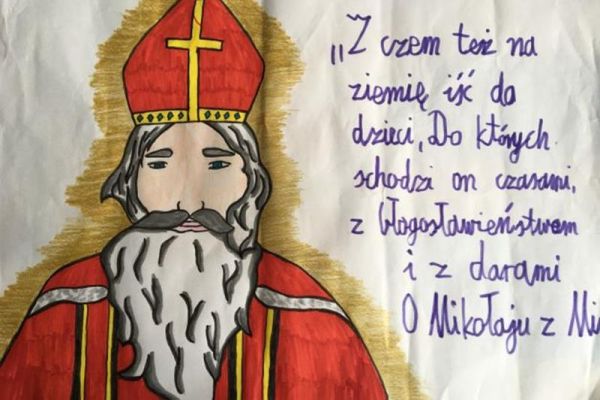 „Z czem też na
ziemię iść do
dzieci, Do których
schodzi on czasami,
z błogosławieństwem
i z darami
O Mikołaju z